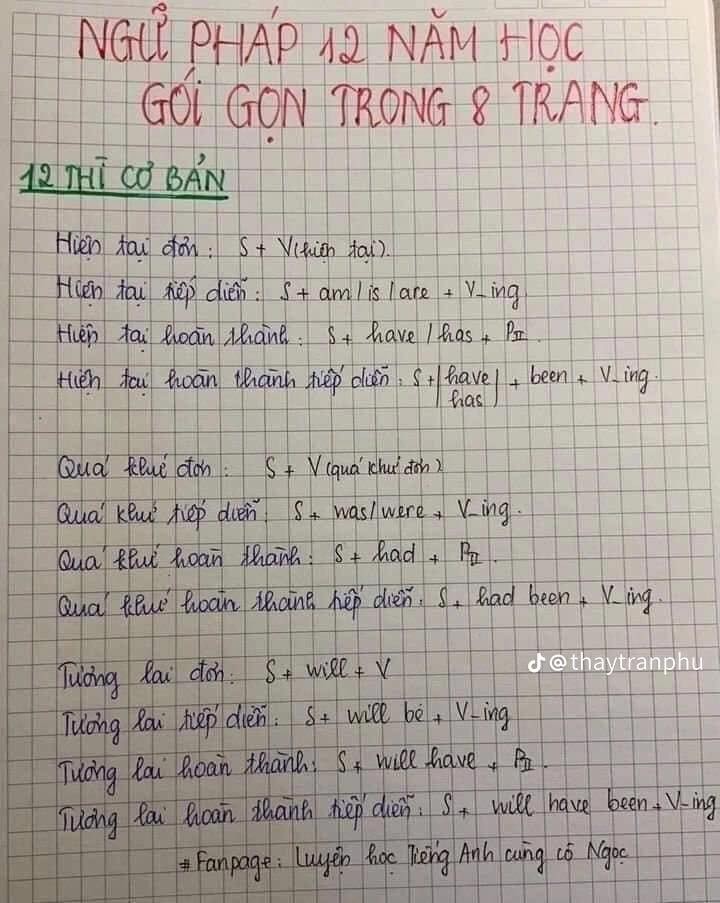 NGỮ PHÁP 12 NĂM HỌC
GÓI GỌN TRONG 8 TRANG.
12 THÌ CƠ BẢN
Hiện tại đơn: S + V(hiện tại).
Hiện tại tiếp diễn: S + am/is/are + V-ing
Hiện tại hoàn thành: S + have/has + PII.
Hiện tại hoàn thành tiếp diễn: S + |have| + been + V-ing.
has
Quá khứ đơn: S + V(quá khứ đơn)
Quá khứ tiếp diễn: S + was/were + V-ing.
Quá khứ hoàn thành: S + had + PII.
Quá khứ hoàn thành tiếp diễn: S + had been + V-ing.
Tương lai đơn: S + will + V
@thaytranphu
Tương lai tiếp diễn: S + will be + V-ing
Tương lai hoàn thành: S + will have + PII.
Tương lai hoàn thành tiếp diễn: S + will have been + V-ing
* Fanpage: Luyện học Tiếng Anh cùng cô Ngọc